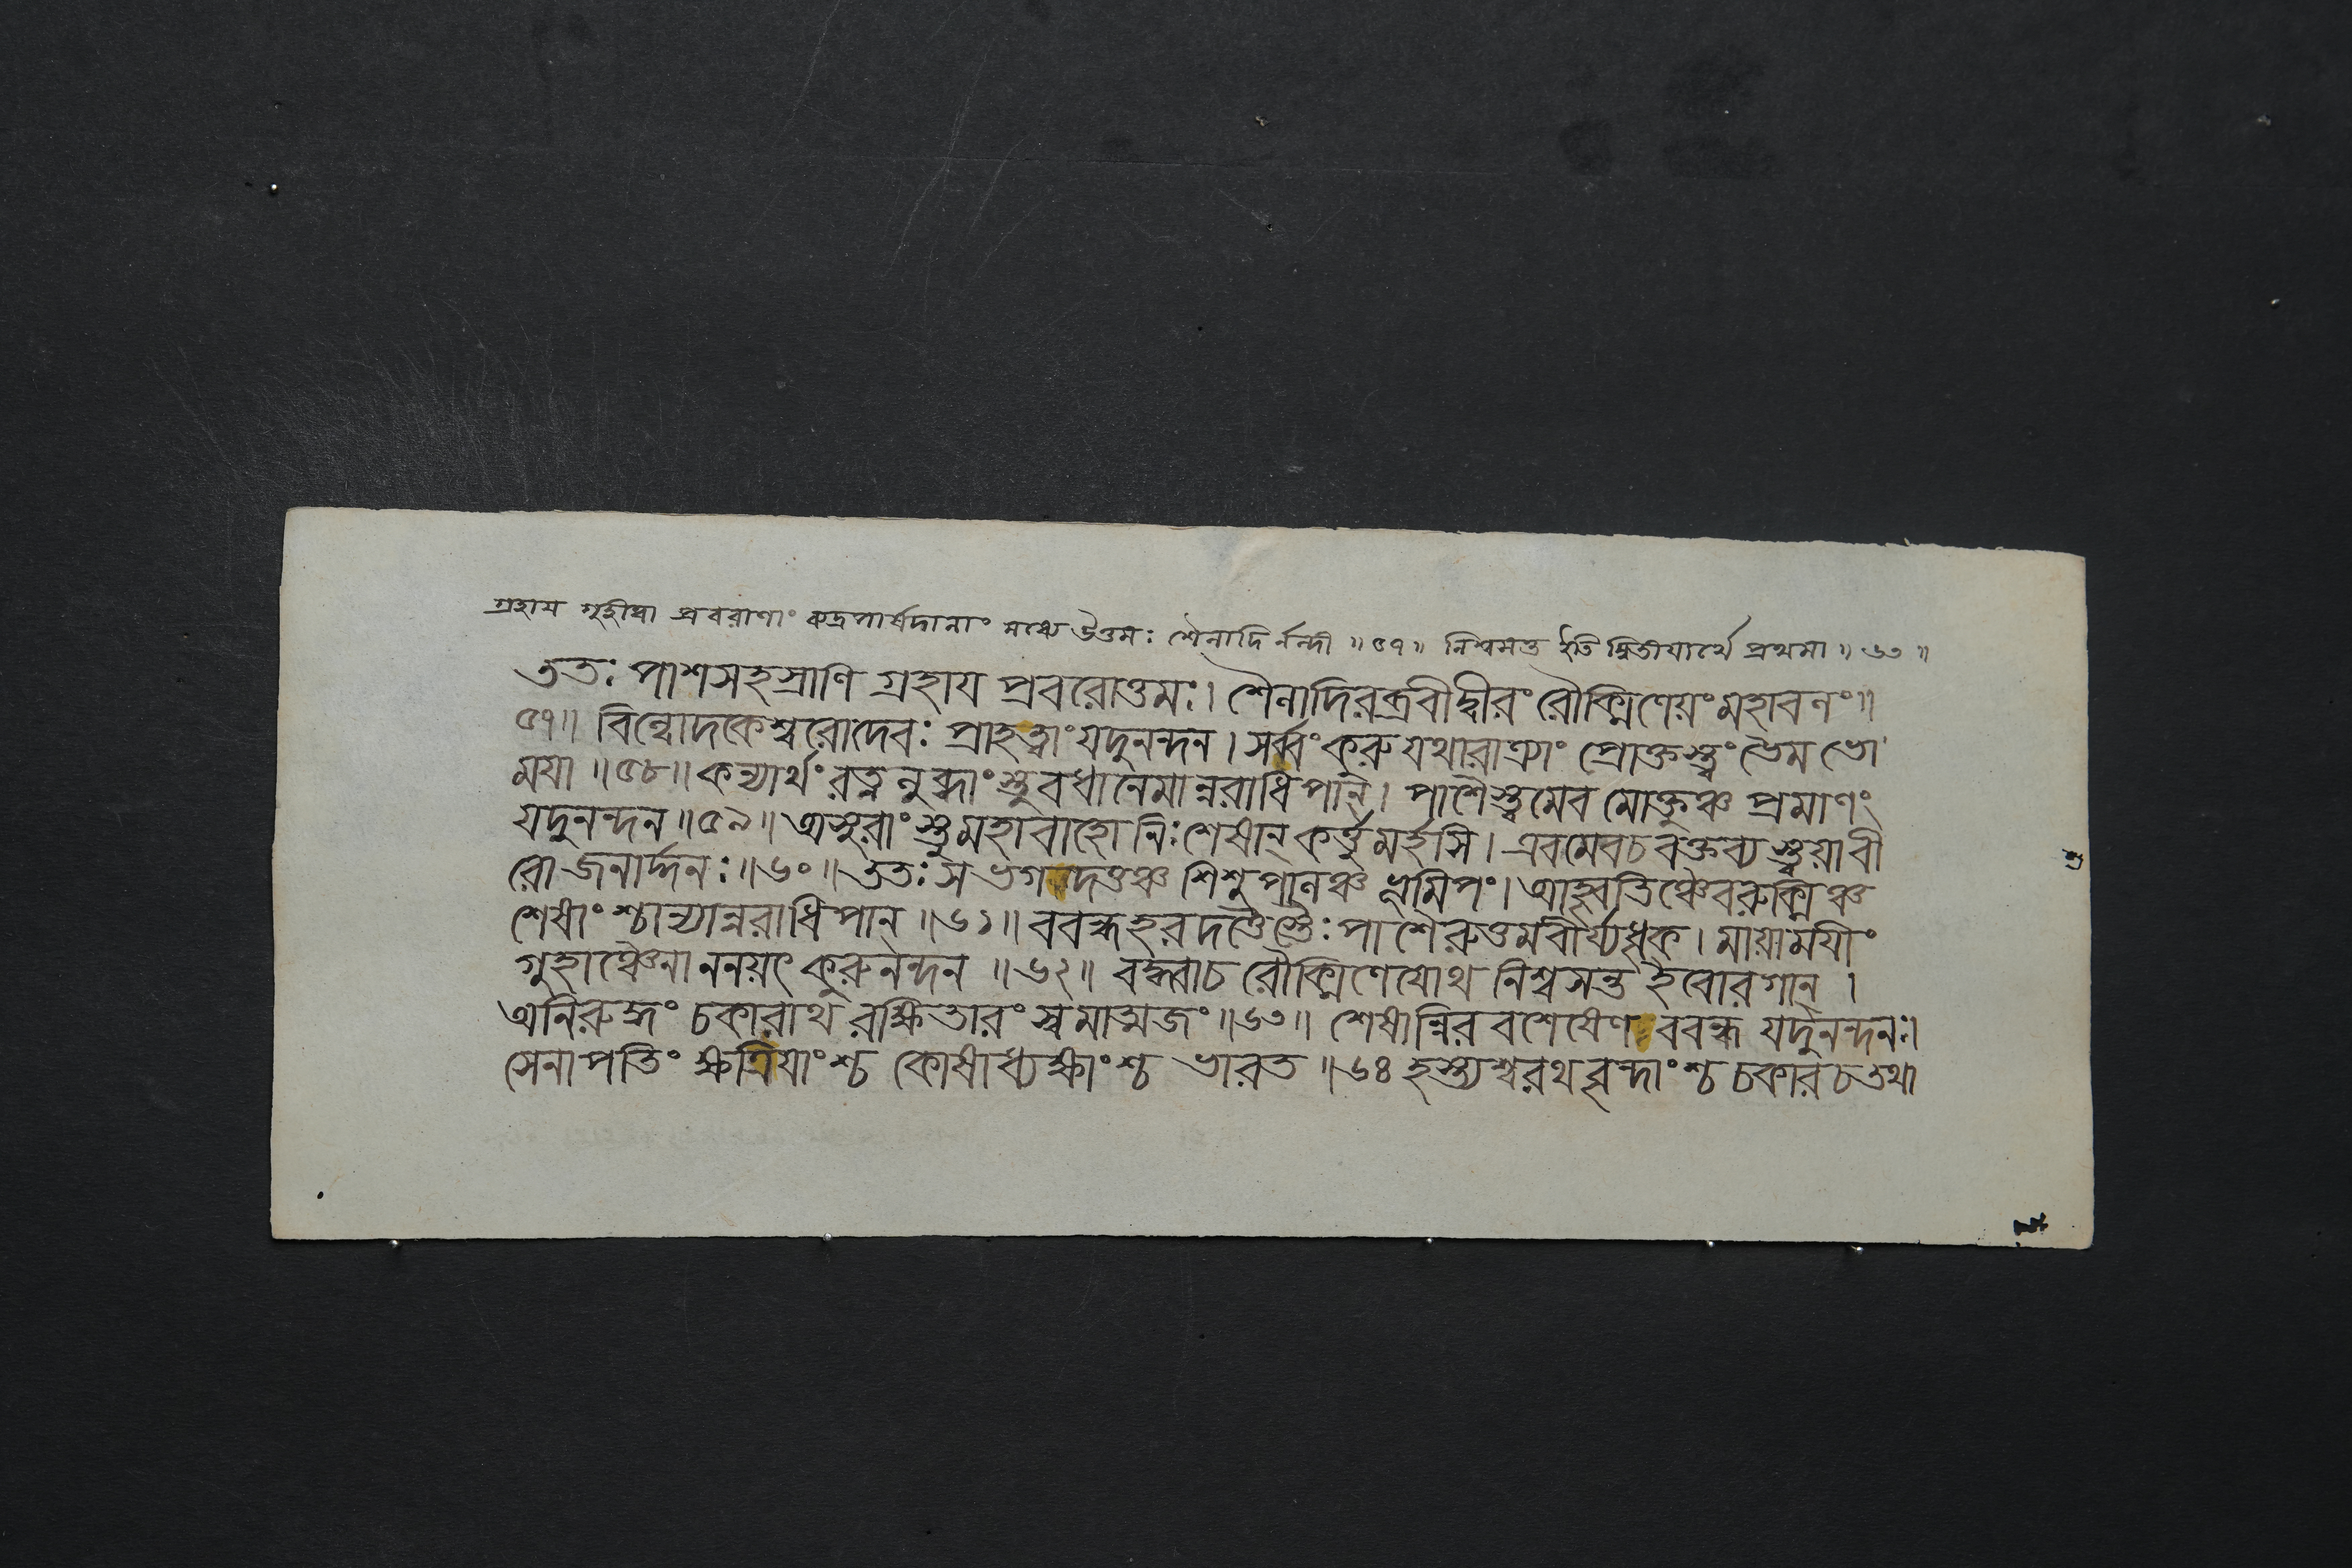 গ্রহায গৃহীত্বা প্রবরাণাং রুদ্রপার্ষদানাং মধ্যে উত্তমঃ শৈনাদির্নন্দী ॥ ৫৭ ॥ নিশ্বসন্ত ইতি দ্বিতীযার্থে প্রথমা ॥ ৬৩ ॥
ততঃ পাশসহস্রাণি গ্রহায প্রবরোত্তমঃ। শৈনাদিরব্রবীদ্বীরং রৌক্মিণেয়ং মহাবলং॥
৫৭॥ বিল্বোদকেশ্বরোদেবঃ প্রাহত্বাং যদুনন্দন। সর্ব্বং কুরু যথারাত্র্যাং প্রোক্তস্ত্বং ভৈম ভো
ময়া ॥৫৮॥ কন্যার্থং রত্নলুব্ধাংস্তু বধানেমান্নরাধিপান্। পাশৈস্ত্বমেব মোক্তুঞ্চ প্রমাণং
যদুনন্দন ॥৫৯॥ অসুরাংস্তু মহাবাহো নিঃশেষান্ কর্ত্তুমর্হসি। এবমেবচ বক্তব্যস্ত্বয়াবী
রো জনার্দ্দনঃ ॥৬০॥ ততঃ স ভগদত্তঞ্চ শিশুপালঞ্চ ভূমিপঃ। আহ্বৃতিঞ্চৈবরুক্মিঞ্চ
শেষাংশ্চান্যান্নরাধিপান্ ॥৬১॥ ববন্ধহরদত্তৈস্তৈঃ পাশৈরুত্তমবীর্য্যধৃক্। মায়াময়ীং
গুহাঞ্চৈনাননয়ৎ কুরুনন্দন ॥৬২॥ বদ্ধ্বাচ রৌক্মিণেযোথ নিশ্বসন্ত ইবোরগান্ ।
অনিরুদ্ধং চকারাথ রক্ষিতারং স্বমাত্মজং ॥৬৩॥ শেষান্নিরবশেষেণ ববন্ধ যদুনন্দনঃ।
সেনাপতিং ক্ষত্রিয়াংশ্চ কোষাধ্যক্ষাংশ্চ ভারত ॥৬৪ হস্ত্যশ্বরথবৃন্দাংশ্চ চকারচ তথা